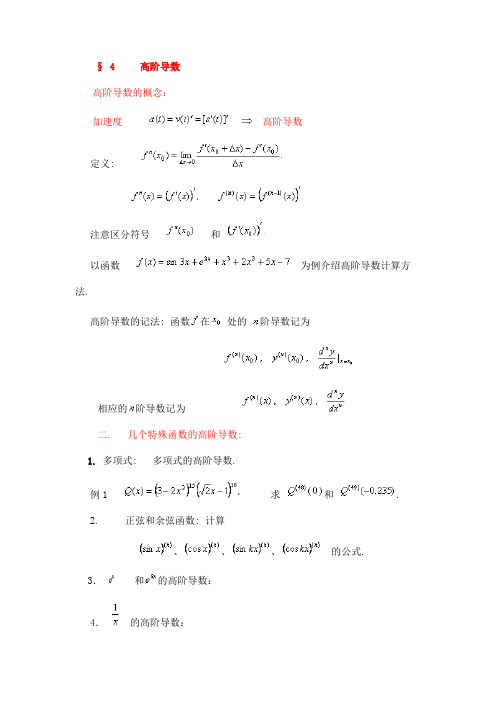 § 4 高阶导数
高阶导数的概念:
加速度 a(t) = v(t)′ = [s′(t)]′ ⇒ 高阶导数
定义: f″(x₀) = lim_{Δx→0} (f′(x₀ + Δx) − f′(x₀))/Δx .
f″(x) = (f′(x))′, f⁽ⁿ⁾(x) = (f⁽ⁿ⁻¹⁾(x))′.
注意区分符号 f″(x₀) 和 (f′(x₀))′.
以函数 f(x) = sin 3x + e³ˣ + x³ + 2x² + 5x − 7 为例介绍高阶导数计算方
法.
高阶导数的记法: 函数 f 在 x₀ 处的 n 阶导数记为
f⁽ⁿ⁾(x₀), y⁽ⁿ⁾(x₀), dⁿy/dxⁿ |ₓ₌ₓ₀
相应的 n 阶导数记为 f⁽ⁿ⁾(x), y⁽ⁿ⁾(x), dⁿy/dxⁿ
二. 几个特殊函数的高阶导数:
1. 多项式: 多项式的高阶导数.
例1 Q(x) = (3 − 2x²)¹⁵(√2x − 1)¹⁸, 求 Q⁽⁴⁸⁾(0) 和 Q⁽⁴⁹⁾(−0.235).
2. 正弦和余弦函数: 计算
(sin x)⁽ⁿ⁾、(cos x)⁽ⁿ⁾、(sin kx)⁽ⁿ⁾、(cos kx)⁽ⁿ⁾ 的公式.
3. eˣ 和 eᵏˣ 的高阶导数:
4. 1/x 的高阶导数: